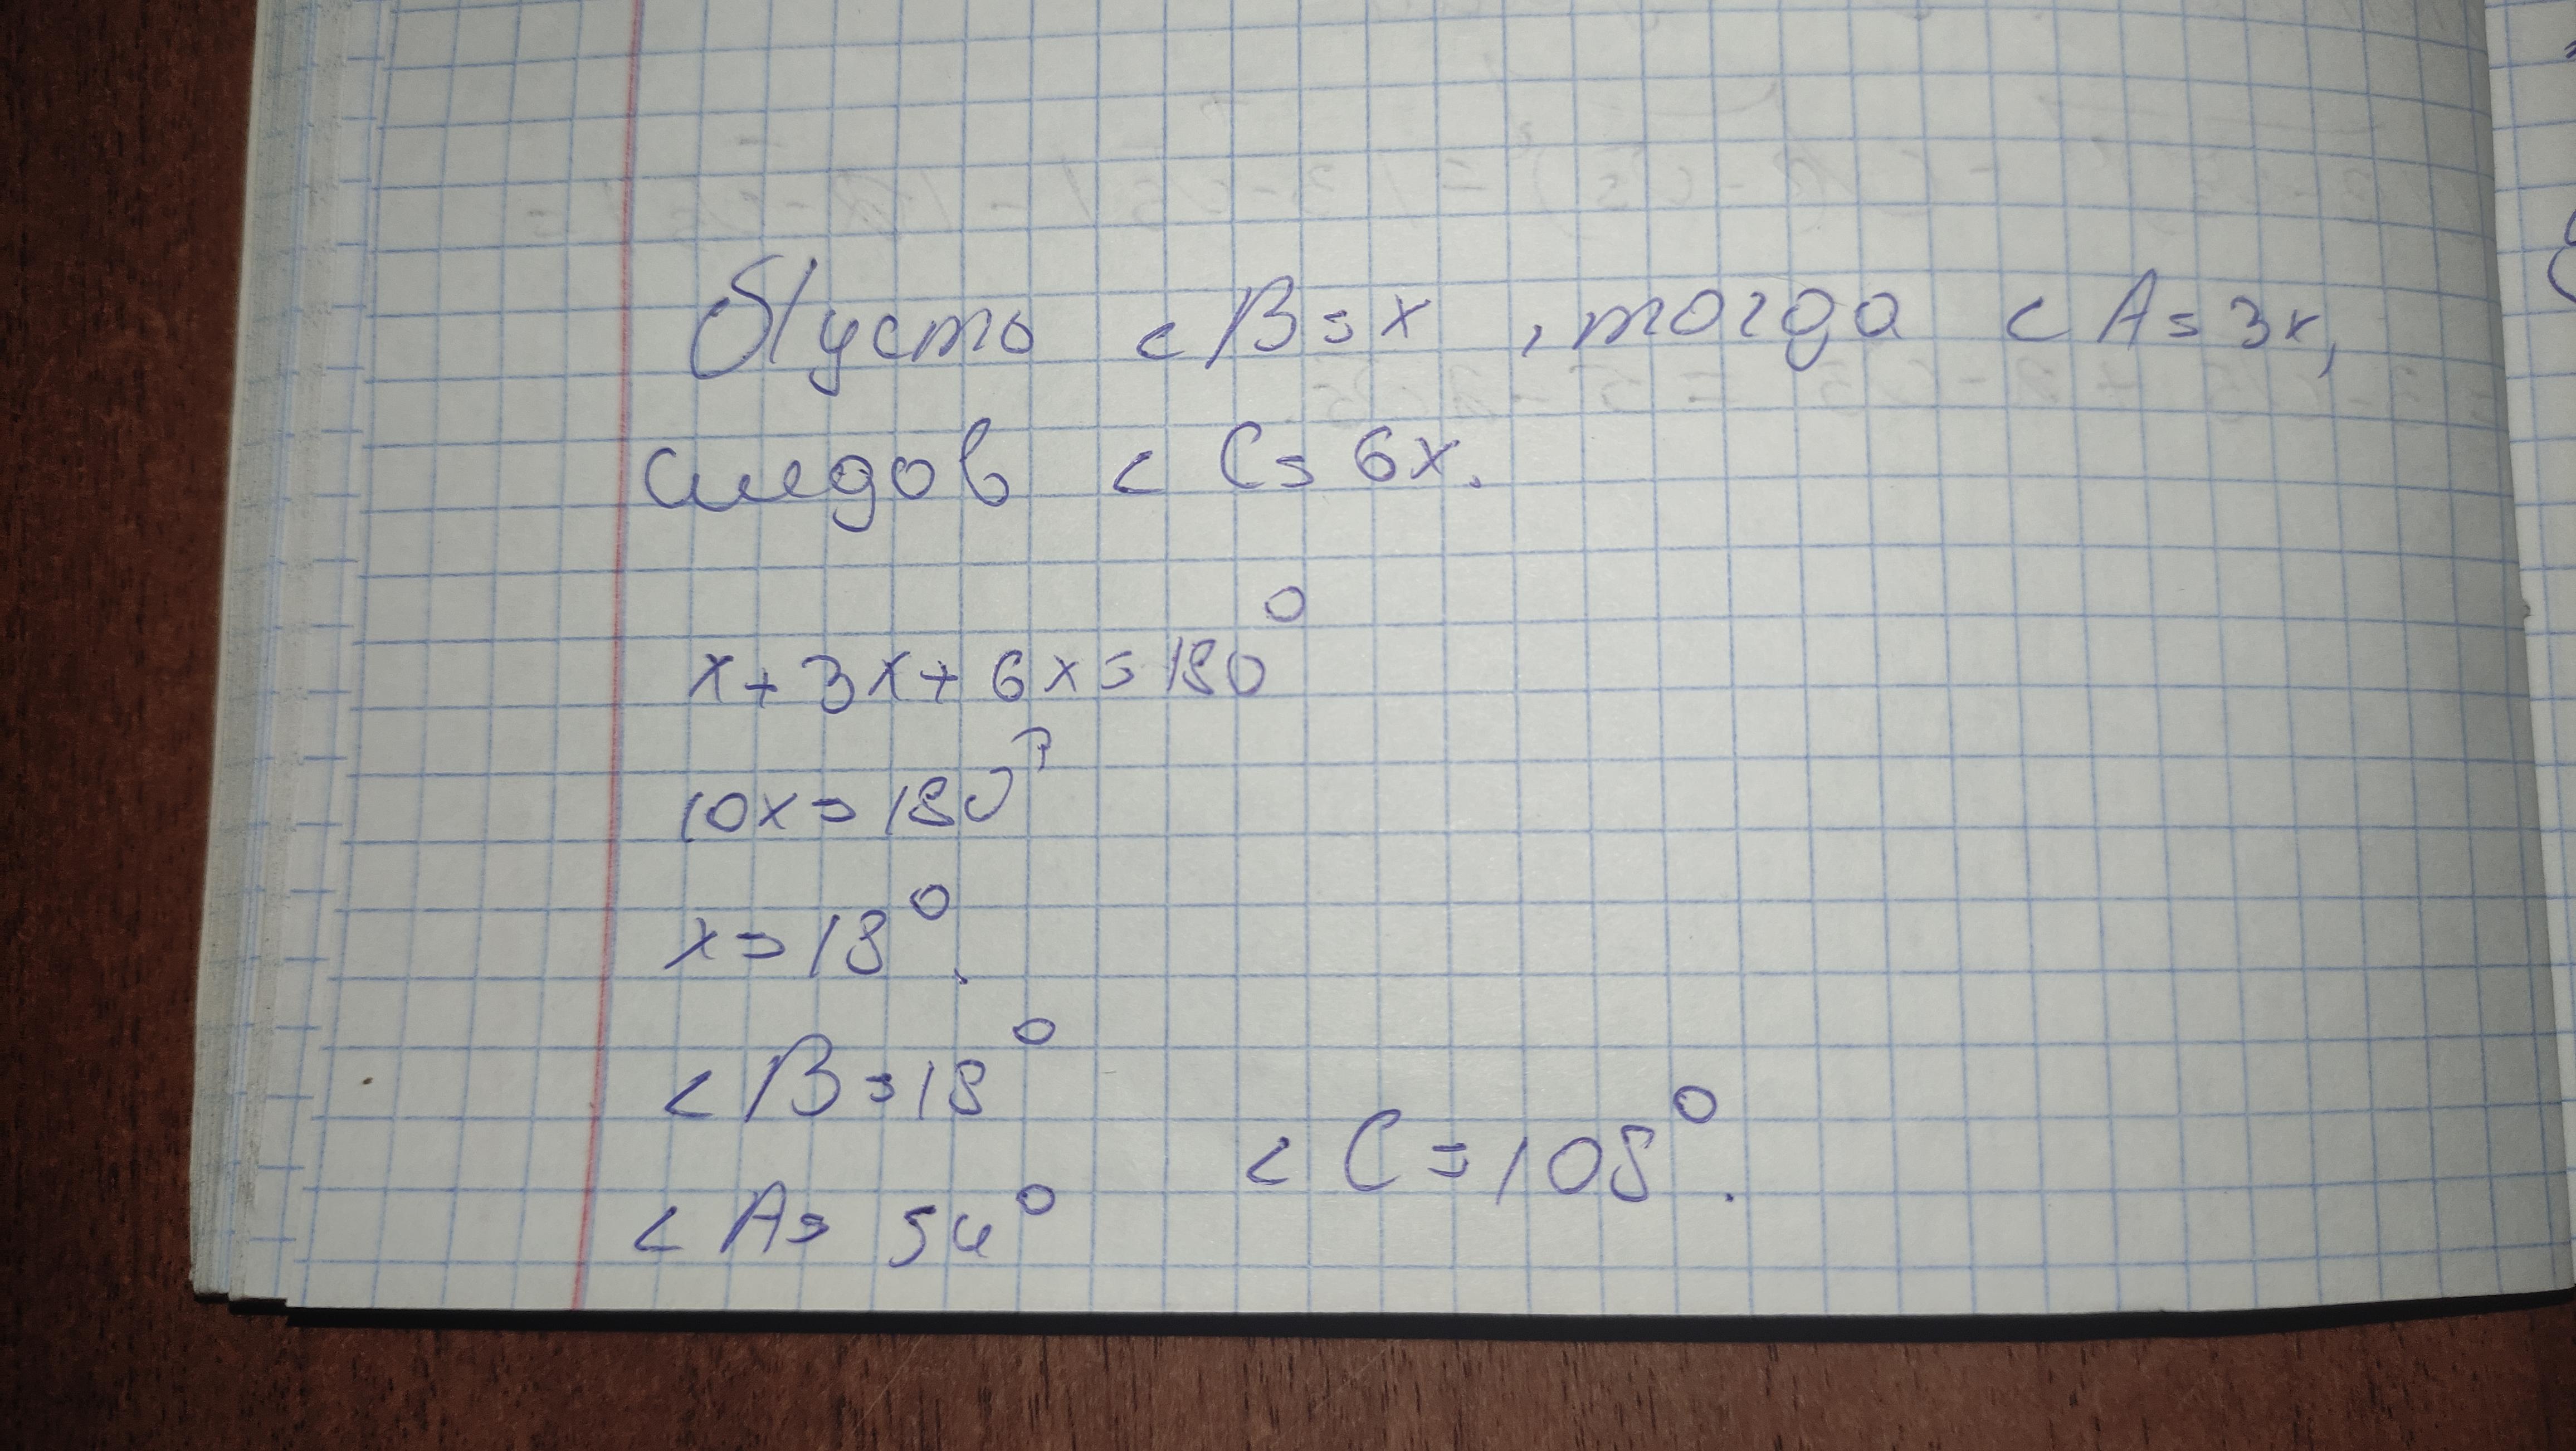 Пусть < B = x , тогда < A = 3x,
следов < C = 6x.
x + 3x + 6x = 180°
10x = 180°
x = 18°.
< B = 18°
< C = 108°.
< A = 54°